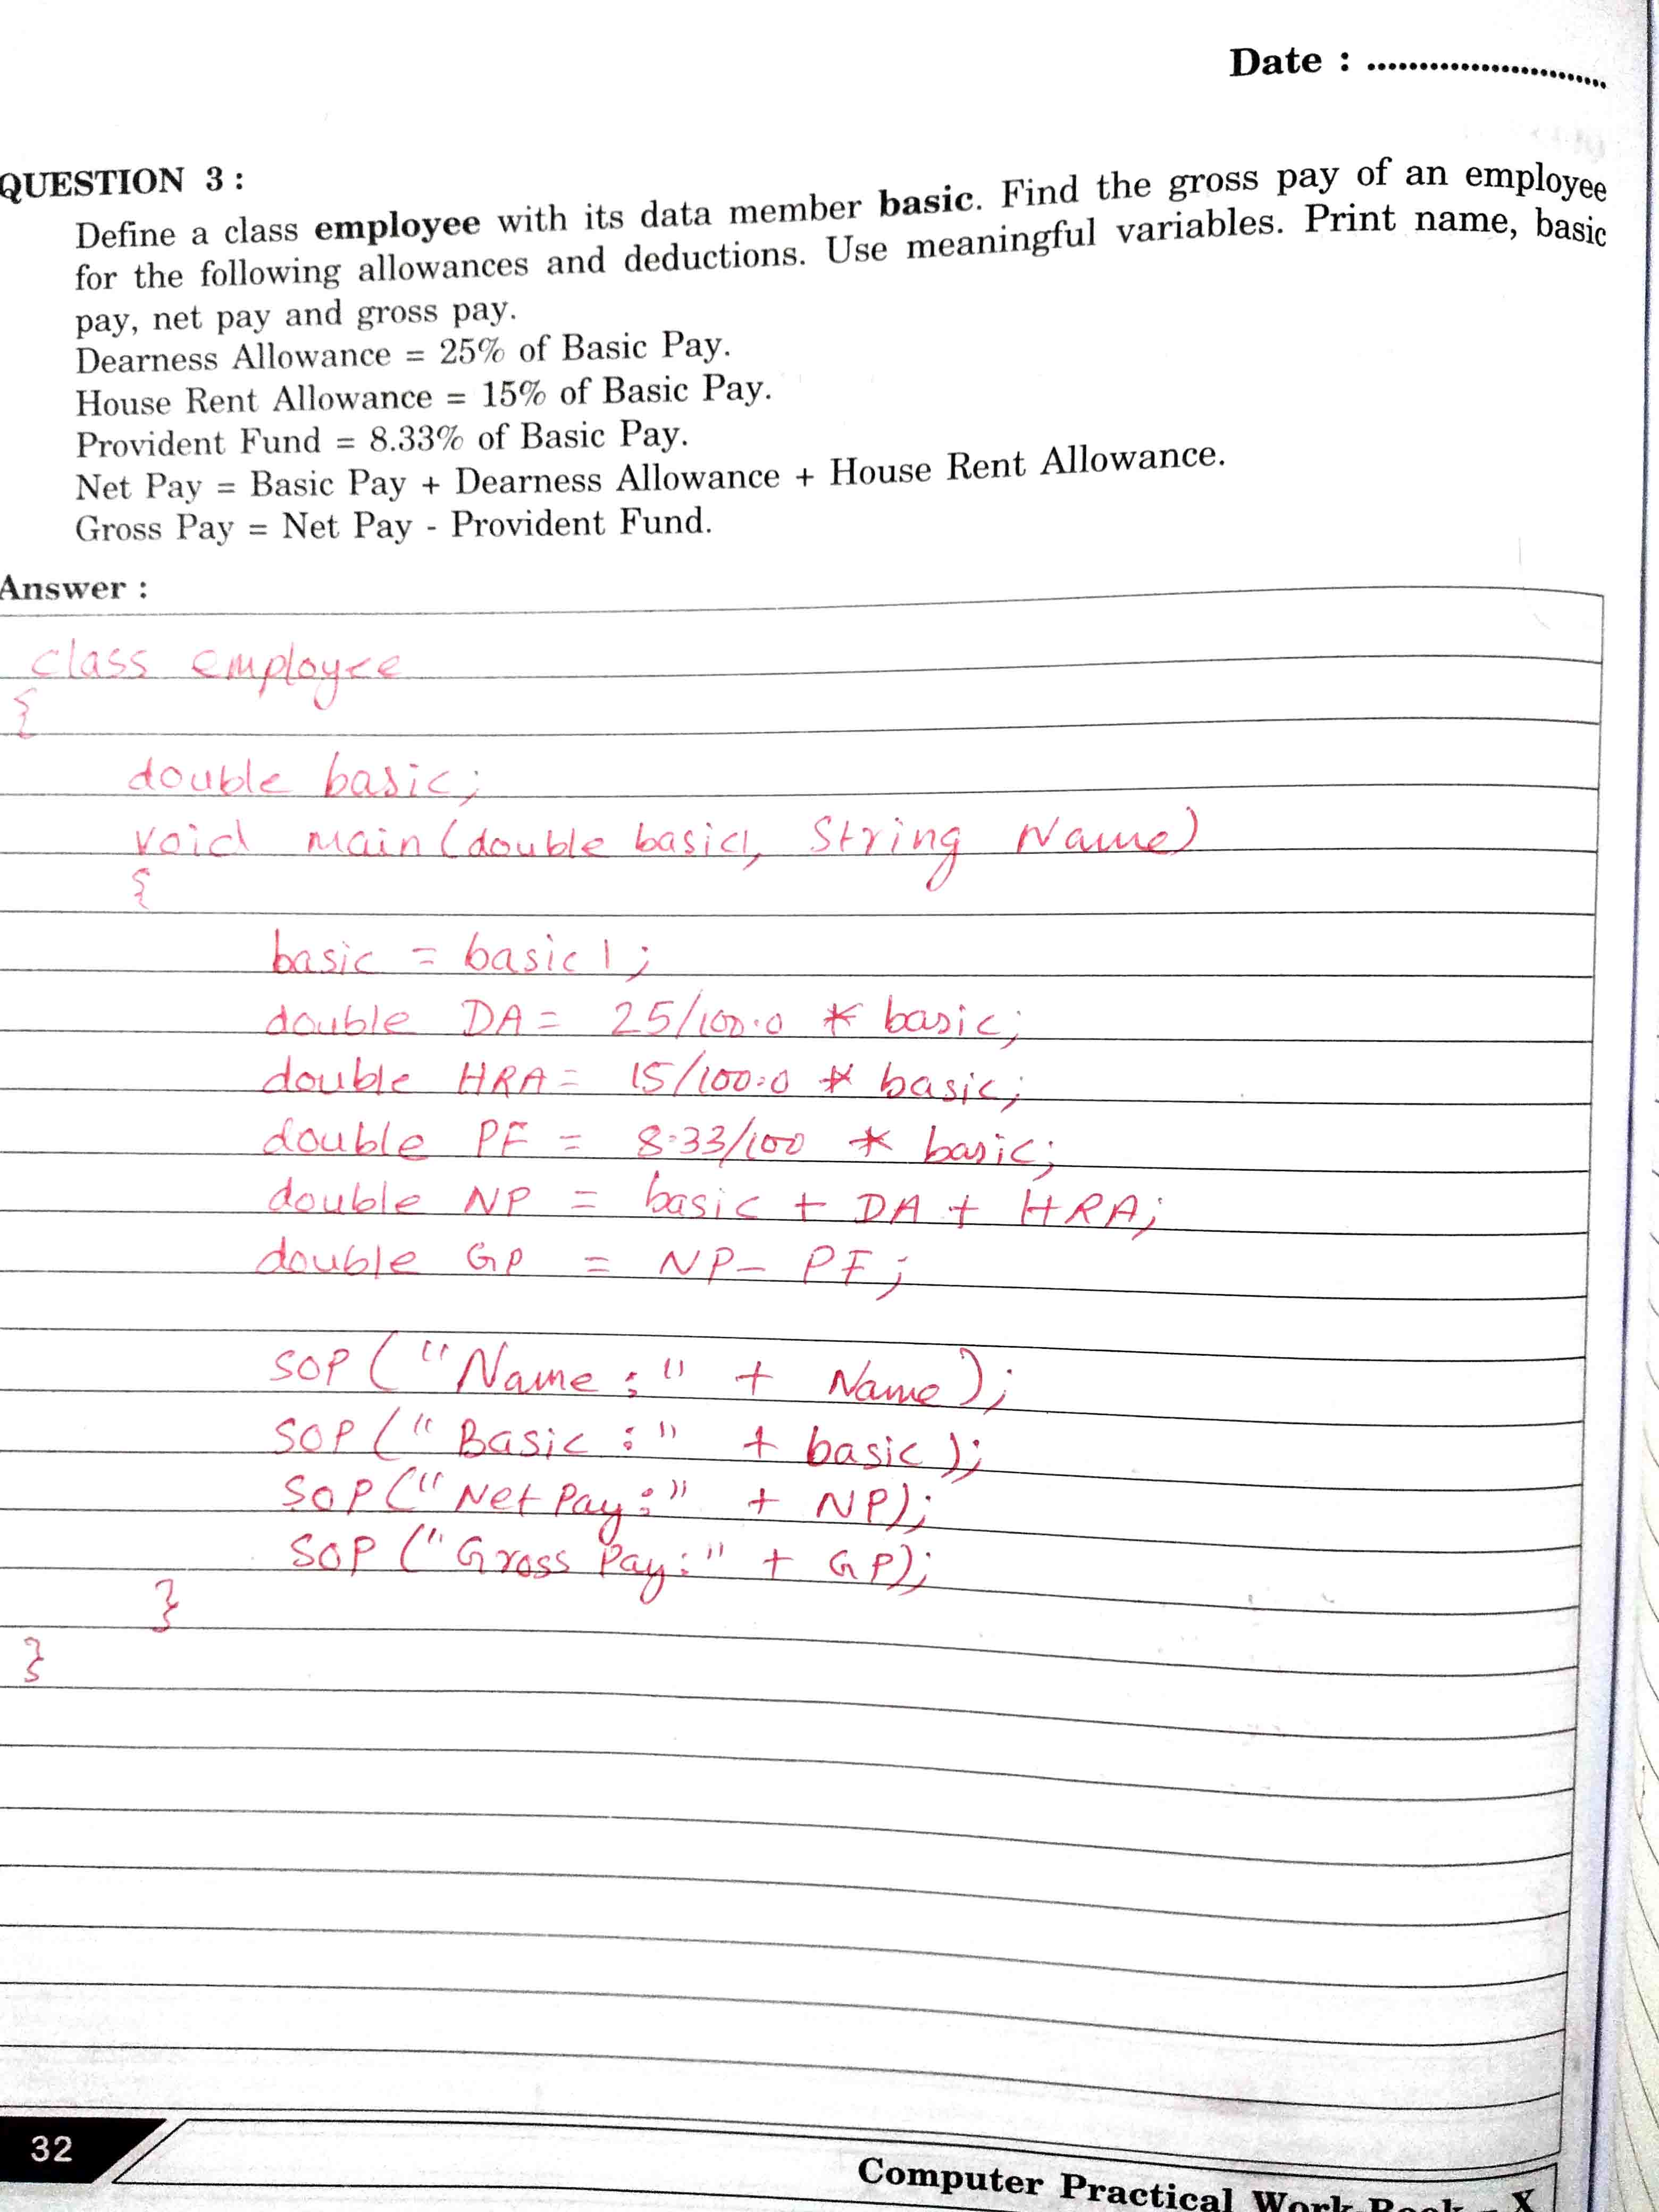 Date : ..............................
QUESTION 3 :
Define a class employee with its data member basic. Find the gross pay of an employee
for the following allowances and deductions. Use meaningful variables. Print name, basic
pay, net pay and gross pay.
Dearness Allowance = 25% of Basic Pay.
House Rent Allowance = 15% of Basic Pay.
Provident Fund = 8.33% of Basic Pay.
Net Pay = Basic Pay + Dearness Allowance + House Rent Allowance.
Gross Pay = Net Pay - Provident Fund.
Answer :
class employee
{
double basic;
void main (double basic1, String Name)
{
basic = basic1;
double DA = 25/100.0 * basic;
double HRA = 15/100.0 * basic;
double PF = 8.33/100 * basic;
double NP = basic + DA + HRA;
double GP = NP - PF;
SOP ("Name :" + Name);
SOP ("Basic :" + basic);
SOP ("Net Pay :" + NP);
SOP ("Gross Pay :" + GP);
}
}
32
Computer Practical Work Book - X